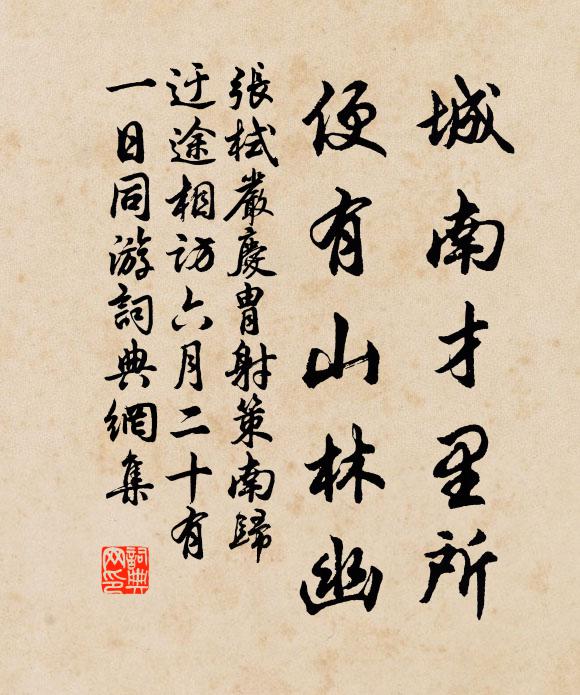 城南才里所
便有山林幽
張栻嚴慶胄射策南歸
迂途相訪六月二十有
一日同游詞典網集
詞典网印